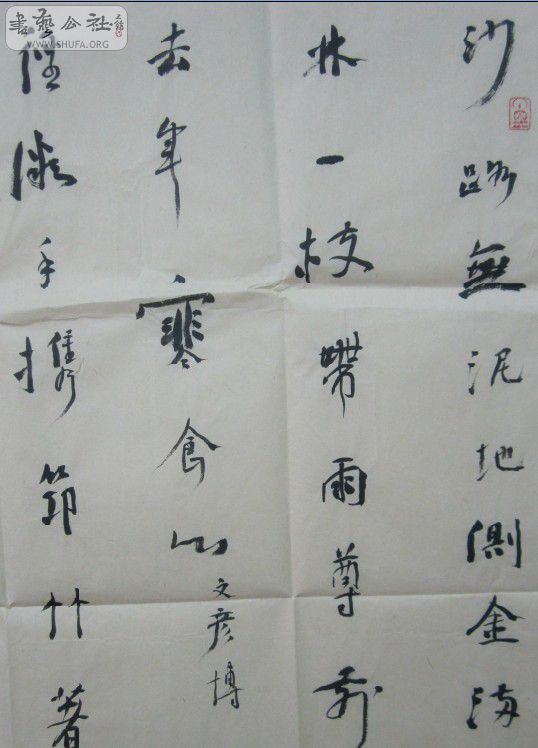 沙路無泥地側金海
林一枝帶雨尊前
去年寒食山
文彦博
径微手携筇竹著
書藝公社
WWW.SHUFA.ORG